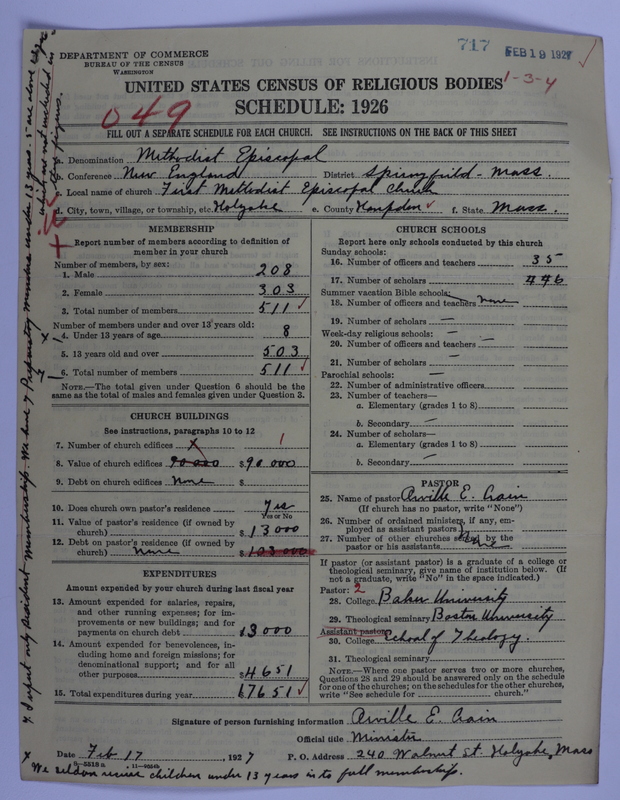 717 FEB 19 1927
DEPARTMENT OF COMMERCE
BUREAU OF THE CENSUS
WASHINGTON
UNITED STATES CENSUS OF RELIGIOUS BODIES
1-3-4
SCHEDULE: 1926
049
FILL OUT A SEPARATE SCHEDULE FOR EACH CHURCH. SEE INSTRUCTIONS ON THE BACK OF THIS SHEET
a. Denomination Methodist Episcopal
b. Conference New England District Springfield - Mass.
c. Local name of church First Methodist Episcopal Church
d. City, town, village, or township, etc. Holyoke e. County Hampden f. State Mass.
MEMBERSHIP
Report number of members according to definition of
member in your church
Number of members, by sex:
1. Male 208
2. Female 303
3. Total number of members 511
Number of members under and over 13 years old:
x 4. Under 13 years of age 8
5. 13 years old and over 503
6. Total number of members 511
NOTE.—The total given under Question 6 should be the
same as the total of males and females given under Question 3.
CHURCH BUILDINGS
See instructions, paragraphs 10 to 12
7. Number of church edifices X 1
8. Value of church edifices 90000 $90000
9. Debt on church edifices None $
10. Does church own pastor's residence Yes
Yes or No
11. Value of pastor's residence (if owned by
church) $13000
12. Debt on pastor's residence (if owned by
church) None $103000
EXPENDITURES
Amount expended by your church during last fiscal year
13. Amount expended for salaries, repairs,
and other running expenses; for im-
provements or new buildings; and for
payments on church debt $3000
14. Amount expended for benevolences, in-
cluding home and foreign missions; for
denominational support; and for all
other purposes $4651
15. Total expenditures during year $7651
CHURCH SCHOOLS
Report here only schools conducted by this church
Sunday schools:
16. Number of officers and teachers 35
17. Number of scholars 446
Summer vacation Bible schools:
18. Number of officers and teachers None
19. Number of scholars —
Week-day religious schools: —
20. Number of officers and teachers —
21. Number of scholars —
Parochial schools: —
22. Number of administrative officers
23. Number of teachers—
a. Elementary (grades 1 to 8)
b. Secondary —
24. Number of scholars—
a. Elementary (grades 1 to 8)
b. Secondary —
PASTOR
25. Name of pastor Orville E. Crain
(If church has no pastor, write "None")
26. Number of ordained ministers, if any, em-
ployed as assistant pastors
27. Number of other churches served by the
pastor or his assistants None
If pastor (or assistant pastor) is a graduate of a college or
theological seminary, give name of institution below. (If
not a graduate, write "No" in the space indicated.)
Pastor: 2
28. College Baker University
29. Theological seminary Boston University
Assistant pastor:
30. College School of Theology.
31. Theological seminary
NOTE.—Where one pastor serves two or more churches,
Questions 28 and 29 should be answered only on the schedule
for one of the churches; on the schedules for the other churches,
write "See schedule for church."
Signature of person furnishing information Orville E. Crain
Official title Minister
Date Feb 17, 1927 P. O. Address 240 Walnut St. Holyoke, Mass
8-5518a
x We seldom receive children under 13 years into full membership.
I report only resident membership. We have 4 Preparatory members under 13 years. 5 are above age
which are not included in
these figures.